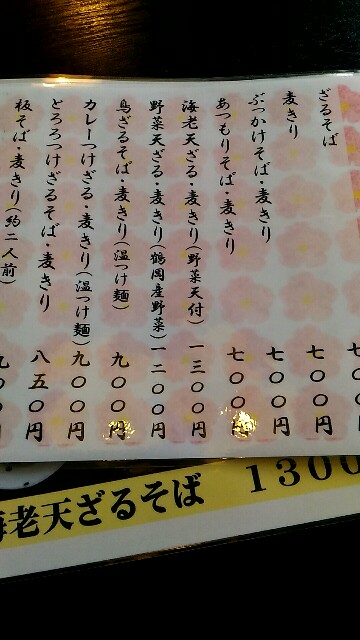 ざるそば 七〇〇円
麦きり 七〇〇円
ぶっかけそば・麦きり 七〇〇円
あつもりそば・麦きり 七〇〇
海老天ざる・麦きり(野菜天付) 一三〇〇円
野菜天ざる・麦きり(鶴岡産野菜) 一二〇〇円
鳥ざるそば・麦きり(温つけ麺) 九〇〇円
カレーつけざる・麦きり(温つけ麺) 九〇〇円
とろろつけざるそば・麦きり 八五〇円
板そば・麦きり(約二人前)
海老天ざるそば 1300